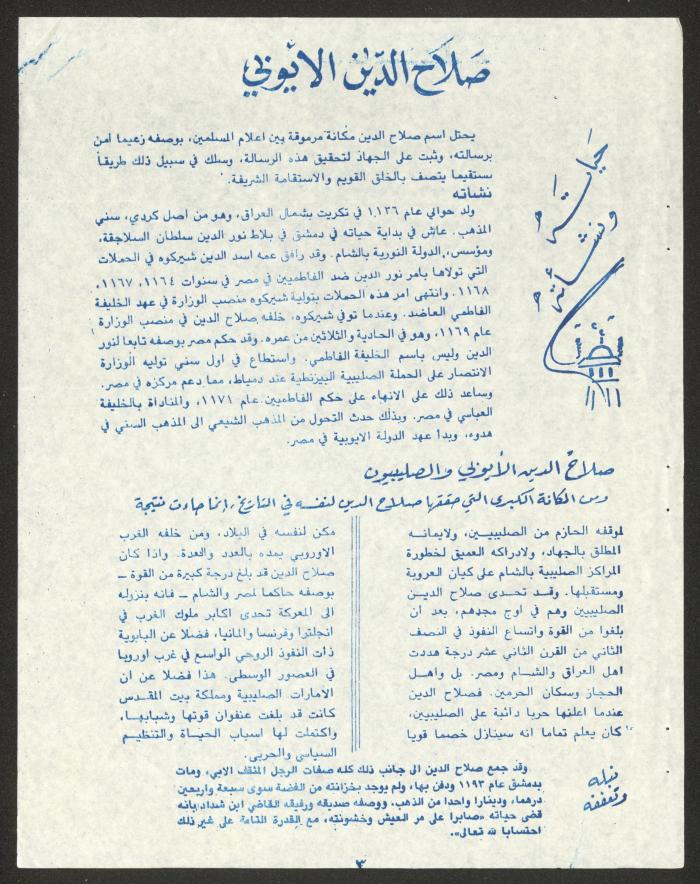 صلاح الدين الأيوبي
حياته
ونشأته
يحتل اسم صلاح الدين مكانة مرموقة بين اعلام المسلمين، بوصفه زعيما امن
برسالته، وثبت على الجهاد لتحقيق هذه الرسالة، وسلك في سبيل ذلك طريقا
مستقيما يتصف بالخلق القويم والاستقامة الشريفة.
نشاته
ولد حوالي عام ١١٣٦ في تكريت بشمال العراق، وهو من اصل كردي، سني
المذهب. عاش في بداية حياته في دمشق في بلاط نور الدين سلطان السلاجقة،
ومؤسس، الدولة النورية بالشام. وقد رافق عمه اسد الدين شيركوه في الحملات
التي تولاها بامر نور الدين ضد الفاطميين في مصر في سنوات ١١٦٤، ١١٦٧،
١١٦٨. وانتهى امر هذه الحملات بتولية شيركوه منصب الوزارة في عهد الخليفة
الفاطمي العاضد. وعندما توفي شيركوه، خلفه صلاح الدين في منصب الوزارة
عام ١١٦٩، وهو في الحادية والثلاثين من عمره. وقد حكم مصر بوصفه تابعا لنور
الدين وليس باسم الخليفة الفاطمي. واستطاع في اول سني توليه الوزارة
الانتصار على الحملة الصليبية البيزنطية عند دمياط، مما دعم مركزه في مصر.
وساعد ذلك على الانهاء على حكم الفاطميين عام ١١٧١، والمناداة بالخليفة
العباسي في مصر. وبذلك حدث التحول من المذهب الشيعي الى المذهب السني في
هدوء، وبدأ عهد الدولة الايوبية في مصر.
صلاح الدين الأيوبي والصليبيون
ومن المكانة الكبرى التي حققها صلاح الدين لنفسه في التاريخ، إنما جاءت نتيجة
لموقفه الحازم من الصليبيين، ولايمانه
المطلق بالجهاد، ولادراكه العميق لخطورة
المراكز الصليبية بالشام على كيان العروبة
ومستقبلها. وقد تحدى صلاح الدين
الصليبيين وهم في اوج مجدهم، بعد ان
بلغوا من القوة واتساع النفوذ في النصف
الثاني من القرن الثاني عشر درجة هددت
اهل العراق والشام ومصر. بل واهل
الحجاز وسكان الحرمين. فصلاح الدين
عندما اعلنها حربا دائبة على الصليبيين،
كان يعلم تماما انه سينازل خصما قويا
مكن لنفسه في البلاد، ومن خلفه الغرب
الاوروبي يمده بالعدد والعدة. واذا كان
صلاح الدين قد بلغ درجة كبيرة من القوة –
بوصفه حاكما لمصر والشام – فانه بنزوله
الى المعركة تحدى اكابر ملوك الغرب في
انجلترا وفرنسا والمانيا، فضلا عن البابوية
ذات النفوذ الروحي الواسع في غرب اوروبا
في العصور الوسطى. هذا فضلا عن ان
الأمارات الصليبية ومملكة بيت المقدس
كانت قد بلغت عنفوان قوتها وشبابها،
واكتملت لها اسباب الحياة والتنظيم
السياسي والحربي.
نبله
وتعففه
وقد جمع صلاح الدين الى جانب ذلك كله صفات الرجل المثقف الابي، ومات
بدمشق عام ١١٩٣ ودفن بها، ولم يوجد بخزانته من الفضة سوى سبعة واربعين
درهما، ودينارا واحدا من الذهب. ووصفه صديقه ورفيقه القاضي ابن شداد بانه
قضى حياته «صابرا على مر العيش وخشونته، مع القدرة التامة على غير ذلك
احتسابا لله تعالى».
٣